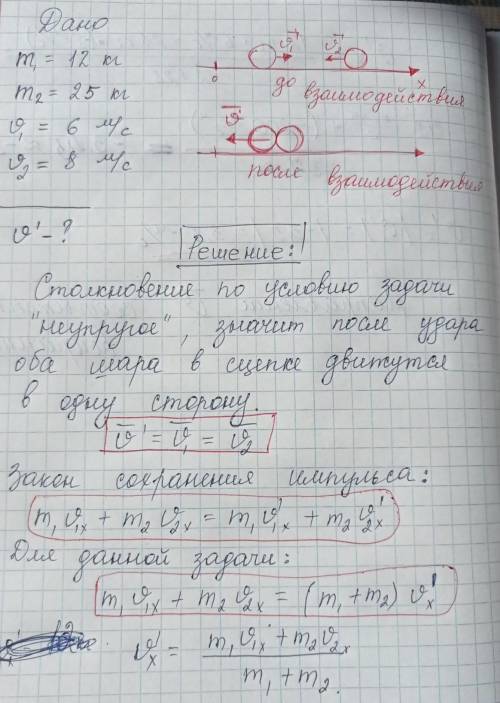 Дано
m₁ = 12 кг
m₂ = 25 кг
υ₁ = 6 м/с
υ₂ = 8 м/с
υ' - ?
υ₁ υ₂
0 x
до взаимодействия
υ'
после взаимодействия
Решение:
Столкновение по условию задачи
"неупругое", значит после удара
оба шара в сцепке движутся
в одну сторону.
υ' = υ₁ = υ₂
Закон сохранения импульса:
m₁υ₁ₓ + m₂υ₂ₓ = m₁υ'₁ₓ + m₂υ'₂ₓ
Для данной задачи:
m₁υ₁ₓ + m₂υ₂ₓ = (m₁ + m₂) υ'ₓ
υ'ₓ = m₁υ₁ₓ + m₂υ₂ₓ
m₁ + m₂.